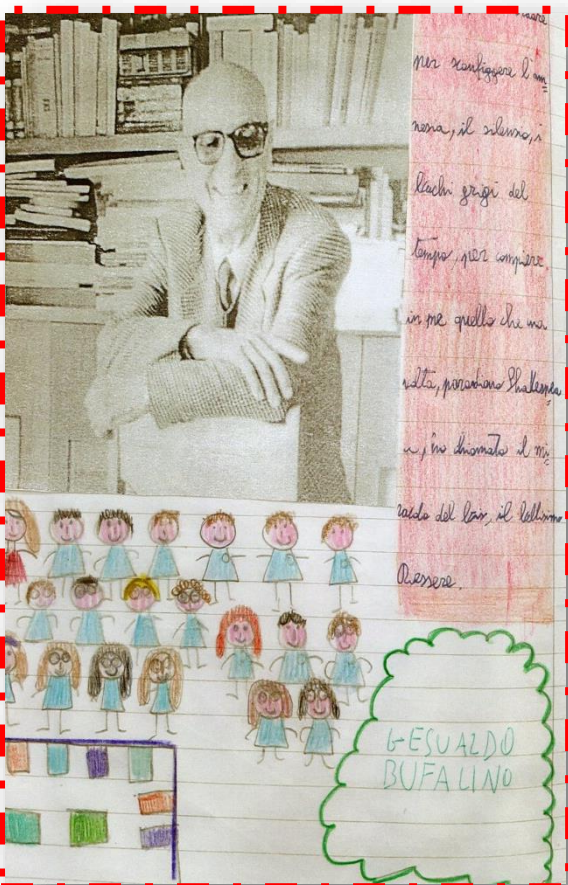 per sconfiggere l'am=
nesia, il silenzio, i
buchi grigi del
tempo, per compiere,
in me quello che una
volta, parodiano Shakespea
re, ho chiamato il mi=
racolo del bis, il bellissimo
Riessere.
GESUALDO
BUFALINO